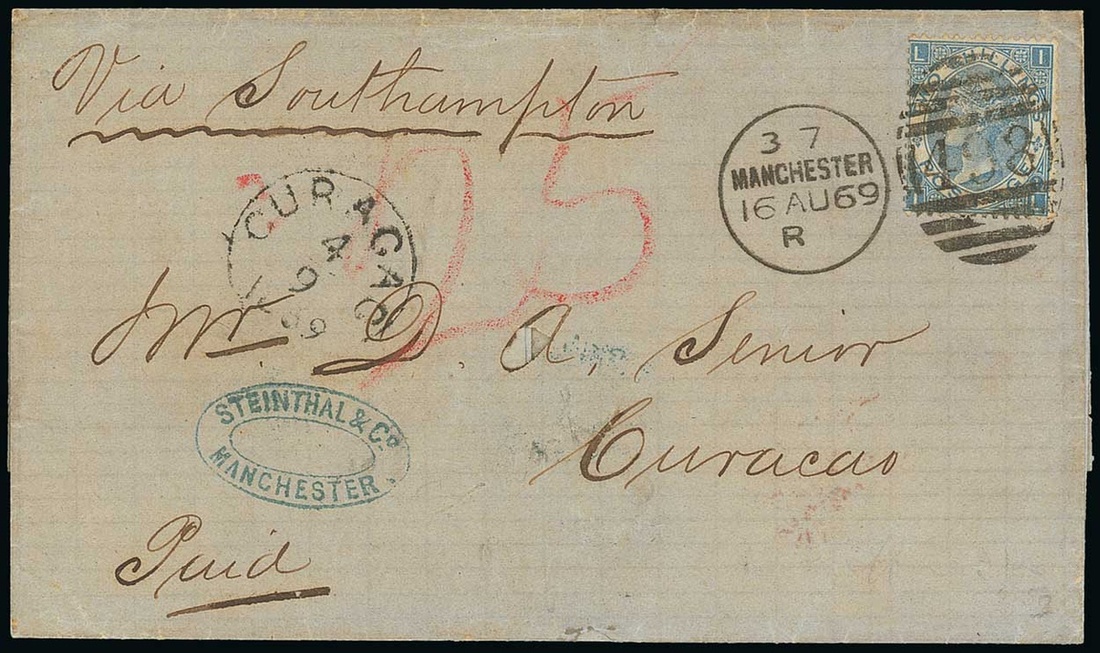 Via Southampton
L I
TWO SHILLINGS
498
I L
37
MANCHESTER
16 AU 69
R
CURAÇAO
4
9
69
15
Mr D. A. Senior
Curacao
STEINTHAL & Co
MANCHESTER
Paid